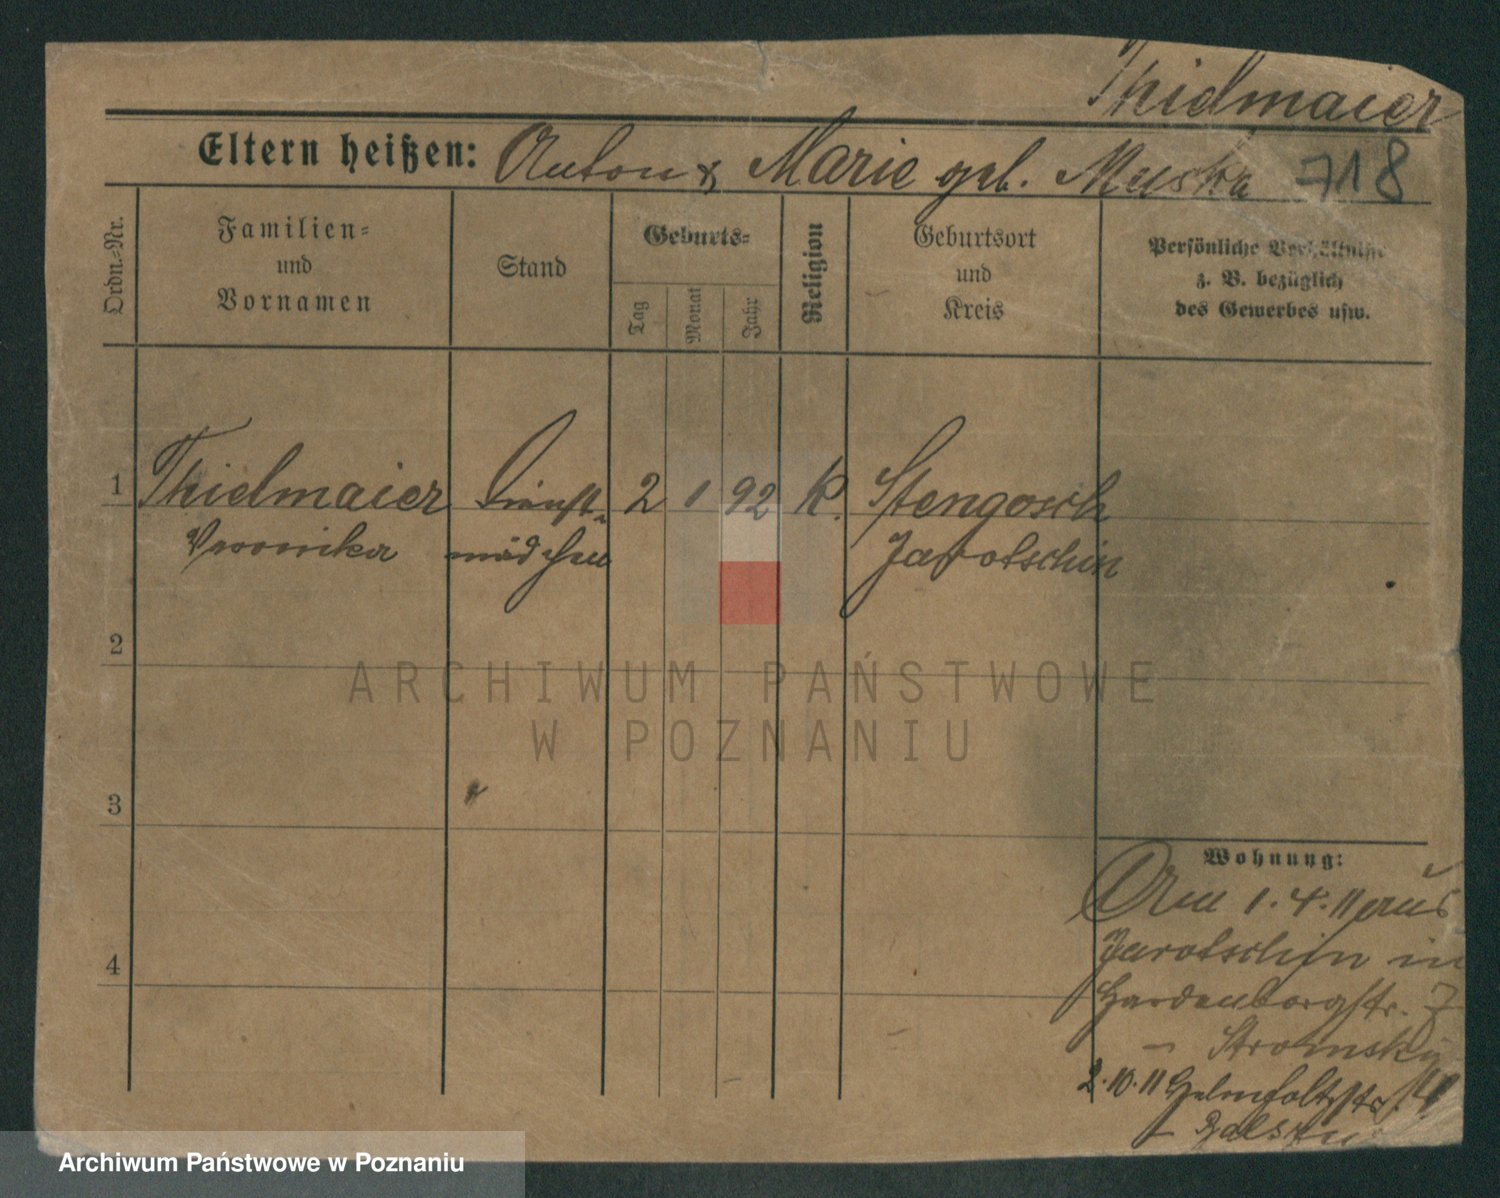 Thielmaier
Eltern heißen: Anton & Marie geb. Muska 718
Ordn.-Nr.
Familien-
und
Vornamen
Stand
Geburts-
Tag
Monat
Jahr
Religion
Geburtsort
und
Kreis
Persönliche Verhältnisse
z. B. bezüglich
des Gewerbes usw.
1 Thielmaier Dienst- 2 1 92 K. Stengosch
Veronika mädchen Jarotschin
2
3
4
Wohnung:
Am 1.4.11 aus
Jarotschin in
Hardenbergstr. 7
– Stromsky
2.10.11 Helmholtzstr.
ARCHIWUM PAŃSTWOWE
W POZNANIU
Archiwum Państwowe w Poznaniu